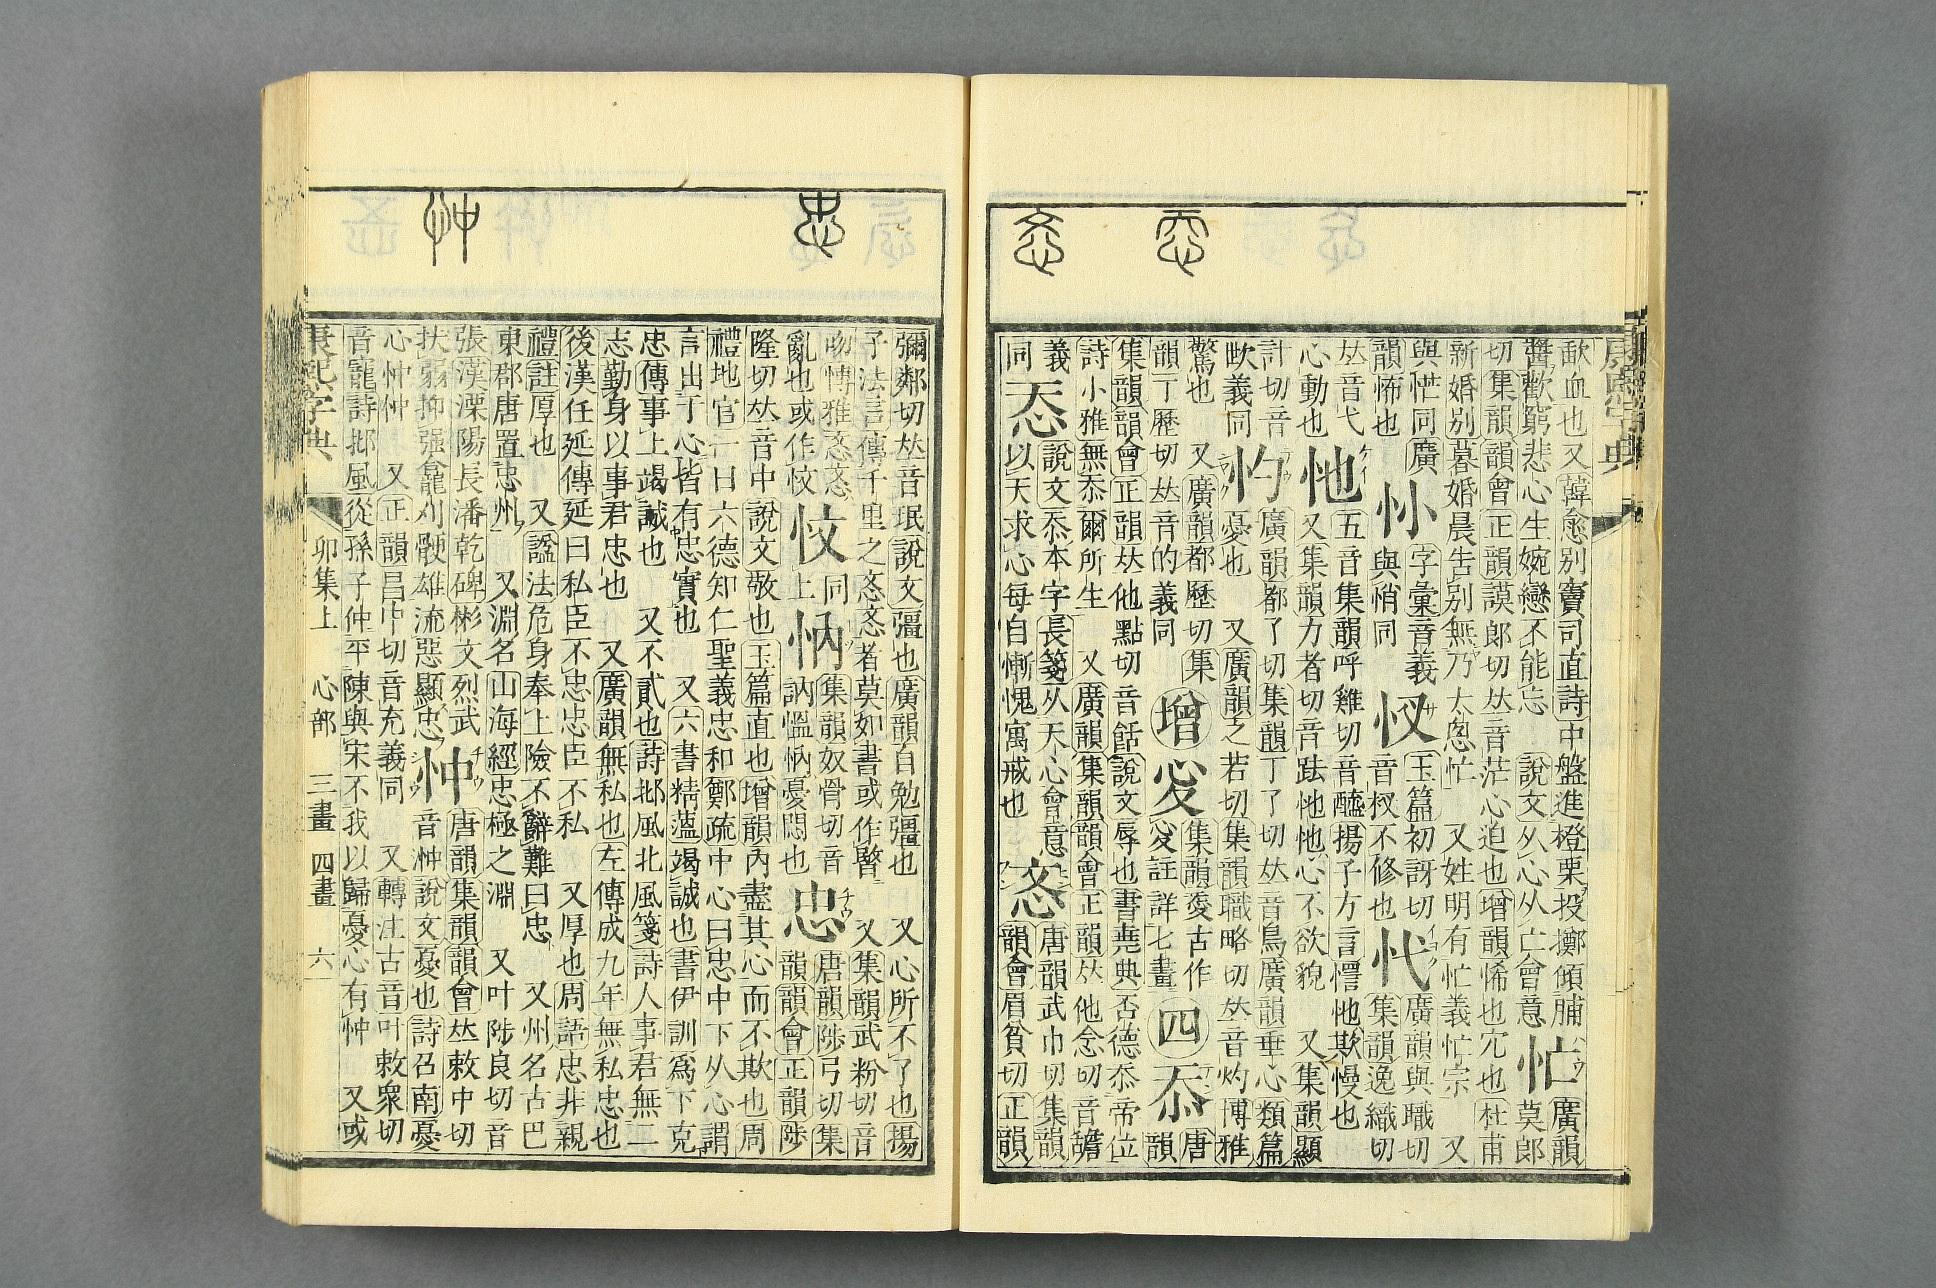 忝
忞
康熙字典
歃血也又韓愈別竇司直詩中盤進橙栗投擲傾脯
醬歡窮悲心生婉孌不能忘 說文从心从亡會意
忙
廣韻
莫郎
切集韻韻會正韻謨郎切𠀤音茫心迫也增韻怖也冗也杜甫
新婚別暮婚晨告別無乃太怱忙 又姓明有忙義忙宗 又
與恾同廣
韻怖也
字彙音義
與悄同
玉篇初訝切
音杈不修也
廣韻與職切
集韻逸織切
𠀤音弋
心動也
忚
五音集韻呼雞切音醯揚子方言愕忚欺慢也
又集韻力者切音跬忚忚心不欲貌 又集韻顯
計切音
欪義同
廣韻都了切集韻丁了切𠀤音鳥廣韻垂心類篇
憂也 又廣韻之若切集韻職略切𠀤音灼博雅
驚也 又廣韻都歷切集
韻丁歷切𠀤音的義同
增
集韻愛古作
註詳七畫
四
忝
唐
韻
集韻韻會正韻𠀤他點切音餂說文辱也書堯典否德忝帝位
詩小雅無忝爾所生 又廣韻集韻韻會正韻𠀤他念切音
義
同
說文忝本字長箋从天心會意
以天求心每自慚愧寓戒也
忞
唐韻武巾切集韻
韻會眉貧切正韻
忠
忡
彌鄰切𠀤音珉說文彊也廣韻自勉彊也 又心所不了也揚
子法言傳千里之忞忞者莫如書或作暋 又集韻武粉切音
吻博雅忞忞
亂也或作忟
忟
同
上
㕯
集韻奴骨切音
訥愠㕯憂悶也
忠
唐韻陟弓切集
韻韻會正韻陟
隆切𠀤音中說文敬也玉篇直也增韻內盡其心而不欺也周
禮地官一曰六德知仁聖義忠和鄭疏中心曰忠中下从心謂
言出于心皆有忠實也 又六書精薀竭誠也書伊訓爲下克
忠傳事上竭誠也 又不貳也詩邶風北風箋詩人事君無二
志勤身以事君忠也 又廣韻無私也左傳成九年無私忠也
後漢任延傳延曰私臣不忠忠臣不私 又厚也周語忠非親
禮註厚也 又諡法危身奉上險不辭難曰忠 又州名古巴
東郡唐置忠州 又淵名山海經忠極之淵 又叶陟良切音
張漢溧陽長潘乾碑彬文烈武
扶弱抑强龕刈骾雄流惡顯忠
忡
唐韻集韻韻會𠀤敕中切
音浺說文憂也詩召南憂
心忡忡 又正韻昌中切音充義同 又轉注古音叶敕衆切
音寵詩邶風從孫子仲平陳與宋不我以歸憂心有忡 又或
康熙字典 卯集上 心部 三畫 四畫 六